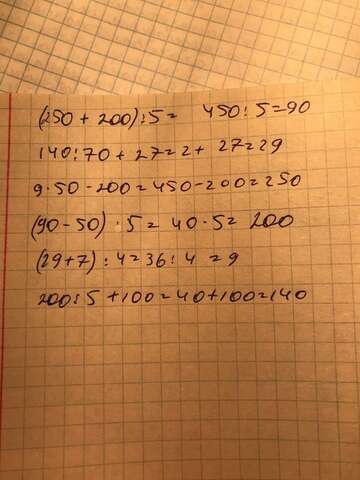 (250 + 200) : 5 = 450 : 5 = 90
140 : 70 + 27 = 2 + 27 = 29
9 · 50 - 200 = 450 - 200 = 250
(90 - 50) · 5 = 40 · 5 = 200
(29 + 7) : 4 = 36 : 4 = 9
200 : 5 + 100 = 40 + 100 = 140